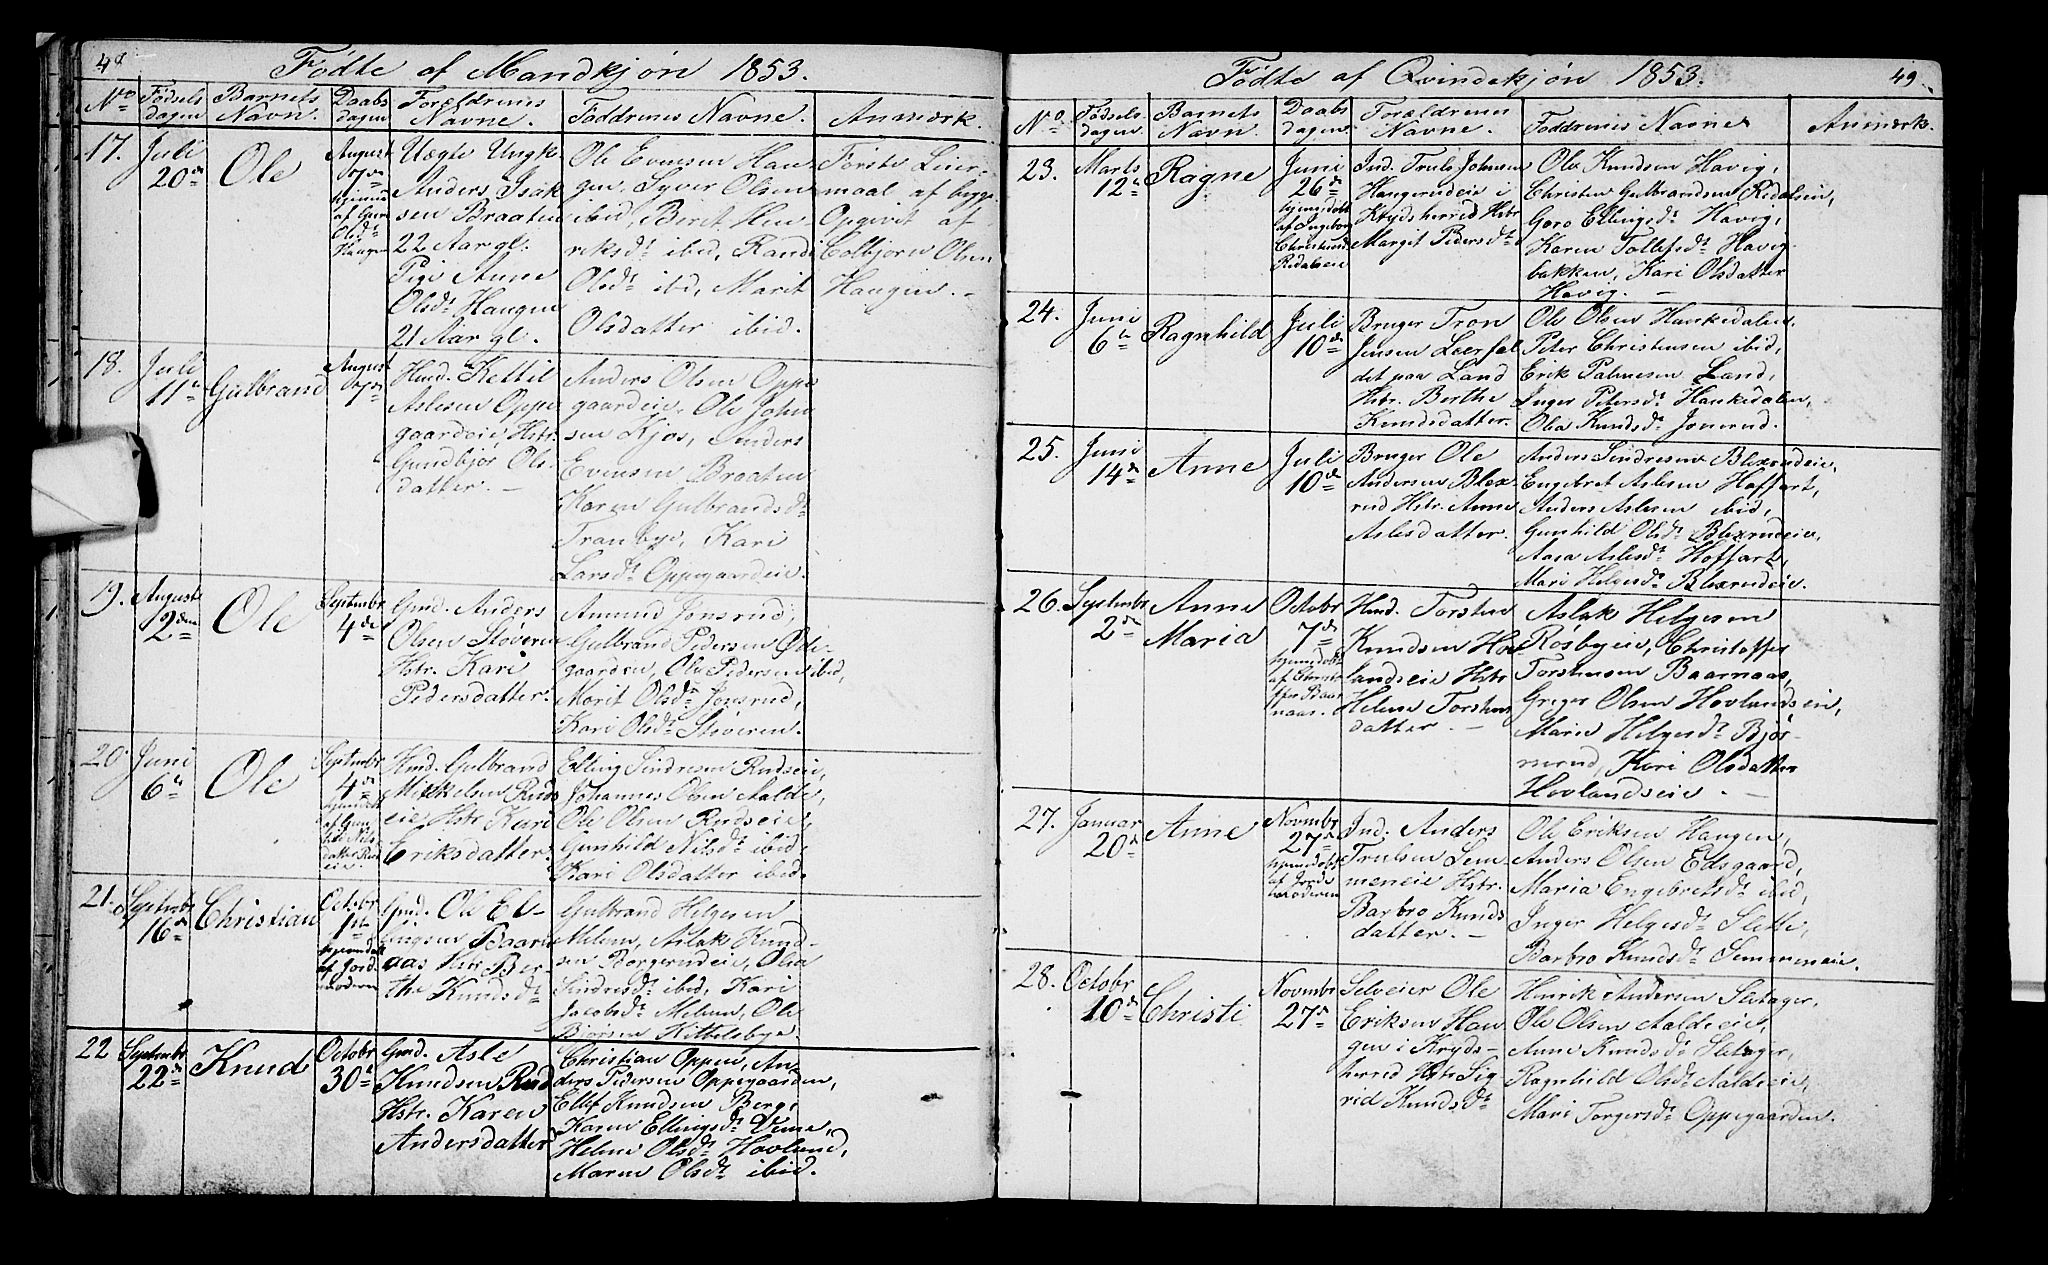 48
Fødte af Mandkjøn 1853.
No
Fødsels
dagen
Barnets
Navn.
Daabs
dagen
Forældrenes
Navne.
Faddrenes Navne.
Anmærk.
17.
Juli
20de
Ole
August
7de
hjemme
af Guri
Olsdr
Haugen
Uægte Ungk
Anders Isak
sen Braaten
22 Aar gl.
Pige Anne
Olsdr Haugen
21 Aar gl.
Ole Evensen Hau
gen, Syver Olsen
ibid, Berit Hen
riksdr ibid, Randi
Olsdr ibid, Marit
Olsdatter ibid.
Første Leier-
maal af begge
Opgivet af
Colbjørn Olsen
Haugen.
18.
Juli
11te
Gulbrand
August
7de
Husd. Kettil
Aslesen Oppe
gaardeie, Hstr.
Gundbjør Ols
datter.
Anders Olsen Oppe
gaardeie, Ole John
sen Kjos, Anders
Evensen Braaten
Karen Gulbrandsdr
Tranbye, Kari
Larsdr Oppegaardeie.
19.
Auguste
2den
Ole
Septembr
4de
Gmd. Anders
Olsen Støveren
Hstr. Kari
Pedersdatter.
Amund Jonsrud,
Gulbrand Pedersen Øde-
gaarden, Ole Pedersen ibid,
Marit Olsdr Jonsrud,
Kari Olsdr Støveren.
20
Juni
6te
Ole
Septembr
4de
hjemdøbt
af Gun
hild Nils
datter Rud
eie.
Husd. Gulbrand
Mikkelsen Ruds
eie Hstr Kari
Eriksdatter.
Elling Sindresen Rudseie,
Johannes Olsen Aalde,
Ole Olsen Rudseie,
Gunhild Nilsdr ibid,
Kari Olsdatter ibid.
21.
Septembr
16de
Christian
Octobr
1ste
hjemdøbt
af Jord
moderen
Gmd. Ole El-
lingsen Baarn
aas Hstr Ber-
the Knudsdr
Gulbrand Helgesen
Melum, Aslak Knud-
sen Borgerudeie, Olea
Sindresdr ibid, Kari
Jacobsdr Melum, Ole
Bjørsen Kittelsbye.
22
Septembr
22de
Knud
Octobr
30te
Gmd. Asle
Knudsen Rud
Hstr. Karen
Andersdatter
Christian Oppen, An
ders Pedersen Oppegaarden,
Ellef Knudsen Berg,
Karen Ellingsdr Veme,
Helene Olsdr Hovland,
Maren Olsdr ibid.
Fødte af Qvindekjøn 1853.
49.
No
Fødsels
dagen
Barnets
Navn.
Daabs
dagen
Forældrenes
Navne.
Faddrenes Navne
Anmærk.
23.
Marts
12te
Ragne
Juni
26de
hjemsdøbt
af Ingeborg
Christiansd
Redalseie
Ind. Truls Johnsen
Haugerudeie i
Krydsherred Hstr
Margit Pedersdr
Ole Knudsen Havig,
Christen Gulbrandsen Redalseie,
Goro Ellingsdr Havig,
Karen Tollefsdr Havig-
bakken, Kari Olsdatter
Havig.
24.
Juni
6te
Ragnhild
Juli
10de
Bruger Tron
Jensen Leerfal
det paa Land
Hstr. Berthe
Knudsdatter.
Ole Olsen Haukedalen,
Peter Christensen ibid,
Erik Palmesen Land,
Inger Petersdr Haukedalen,
Olea Knudsdr Jonsrud.
25.
Juni
14de
Anne
Juli
10de
Bruger Ole
Andersen Blex
rud Hstr. Anne
Aslesdatter.
Anders Sindresen Blexrudeie,
Engebret Aslesen Hoffart,
Anders Aslesen ibid,
Gunhild Olsdr Blexrudeie,
Aase Aslesdr Hoffart,
Mari Helgesdr Blexrudeie.
26.
Septembr
2de
Anne
Maria
Octobr
7de
hjemsdøbt
af Christo
ffer Baar
naas.
Husd. Torsten
Knudsen Hov
landseie Hstr
Helene Torstens
datter.
Aslak Helgesen
Røsbyeie, Christoffer
Torstensen Baarnaas,
Greger Olsen Hovlandseie,
Maren Helgesdr Bjør-
nerud, Kari Olsdatter
Hovlandseie.
27.
Januar
20de
Anne
Novmbr
27de
hjemsdøbt
af Jorde
moderen
Ind. Anders
Trulsen Sem-
meneie Hstr.
Barbro Knuds
datter.
Ole Eriksen Haugen,
Anders Olsen Edsgaard,
Maria Engebretsdr ibid,
Inger Helgesdr Slette,
Barbro Knudsdr Semmeneie.
28.
Octobr
10de
Christi
Novmbr
27de
Selveier Ole
Eriksen Hau
gen i Kryds-
herred Hstr Sig
rid Knudsdr
Henrik Andersen Sletager,
Ole Olsen Aaldeeie,
Anne Knudsdr Sletager,
Ragnhild Olsdr Aaldeeie,
Mari Torgersdr Oppegaarden.